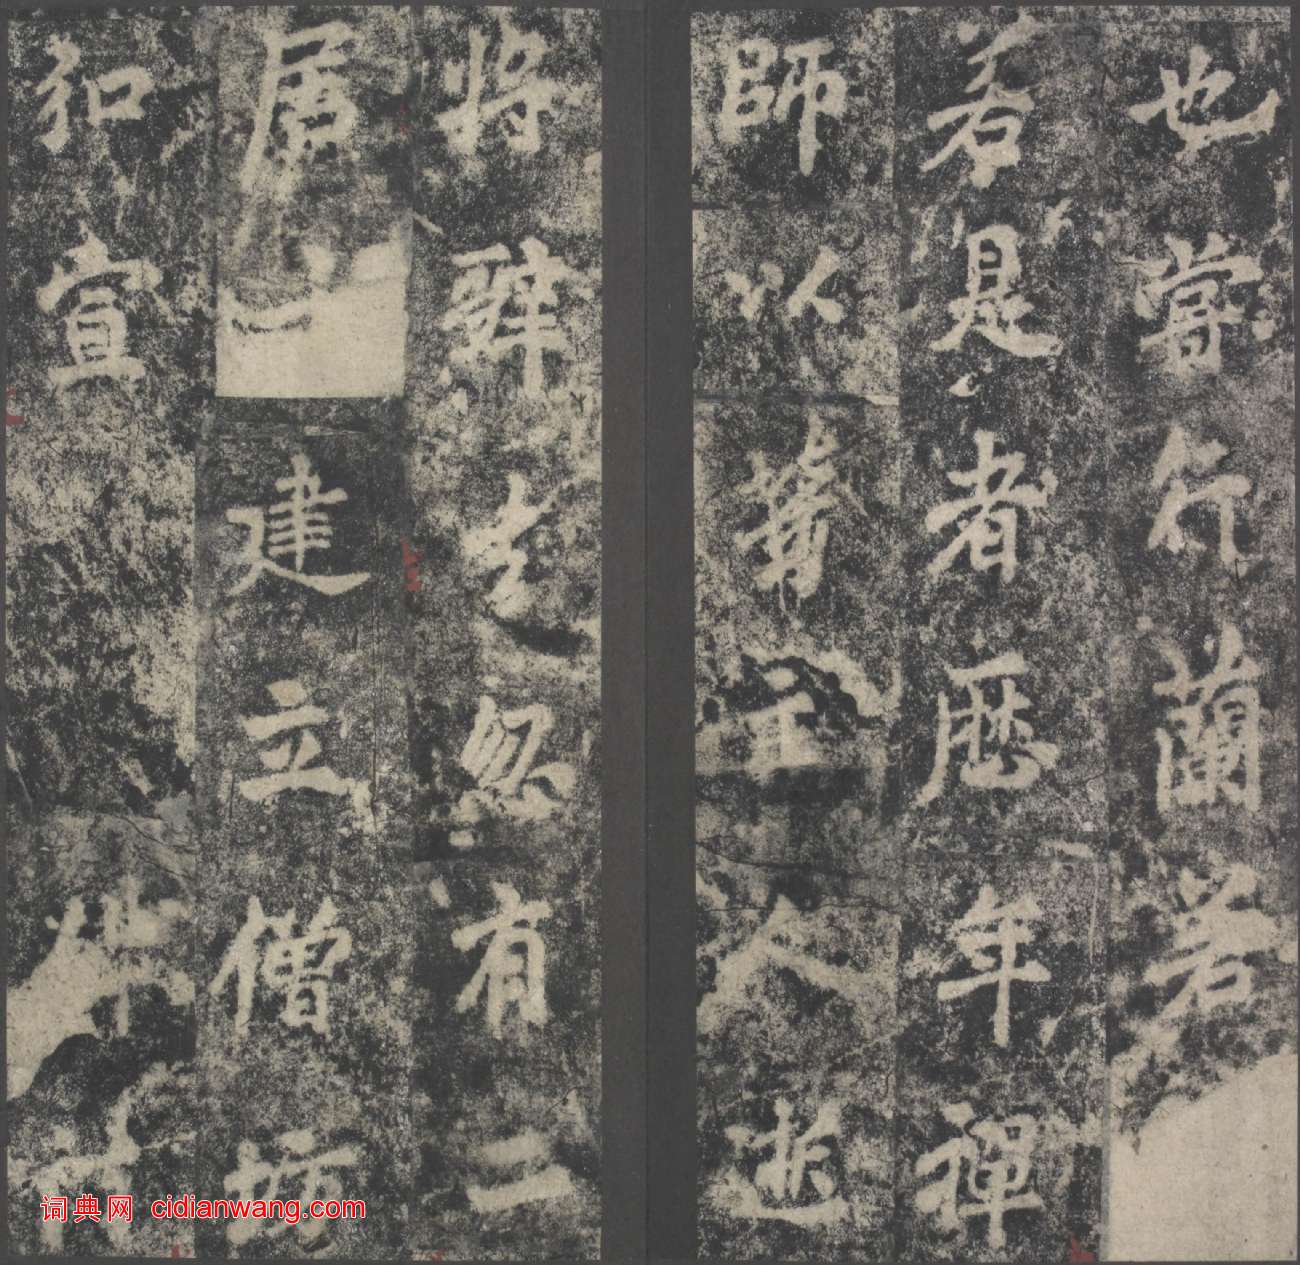 也嘗行蘭若
若是者歷年禪
師以主人逝
將辭去忽有二
居建立僧坊
弘宣
词典网 cidianwang.com